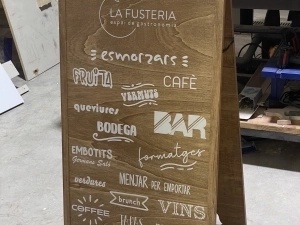 LA FUSTERIA
espai de gastronomia
esmorzars
FRUITA
CAFÈ
VERMUTS
queviures
BODEGA
BAR
EMBOTITS
Germans Solé
formatges
verdures
MENJAR PER EMPORTAR
brunch
COFFEE
VINS
TAPAS